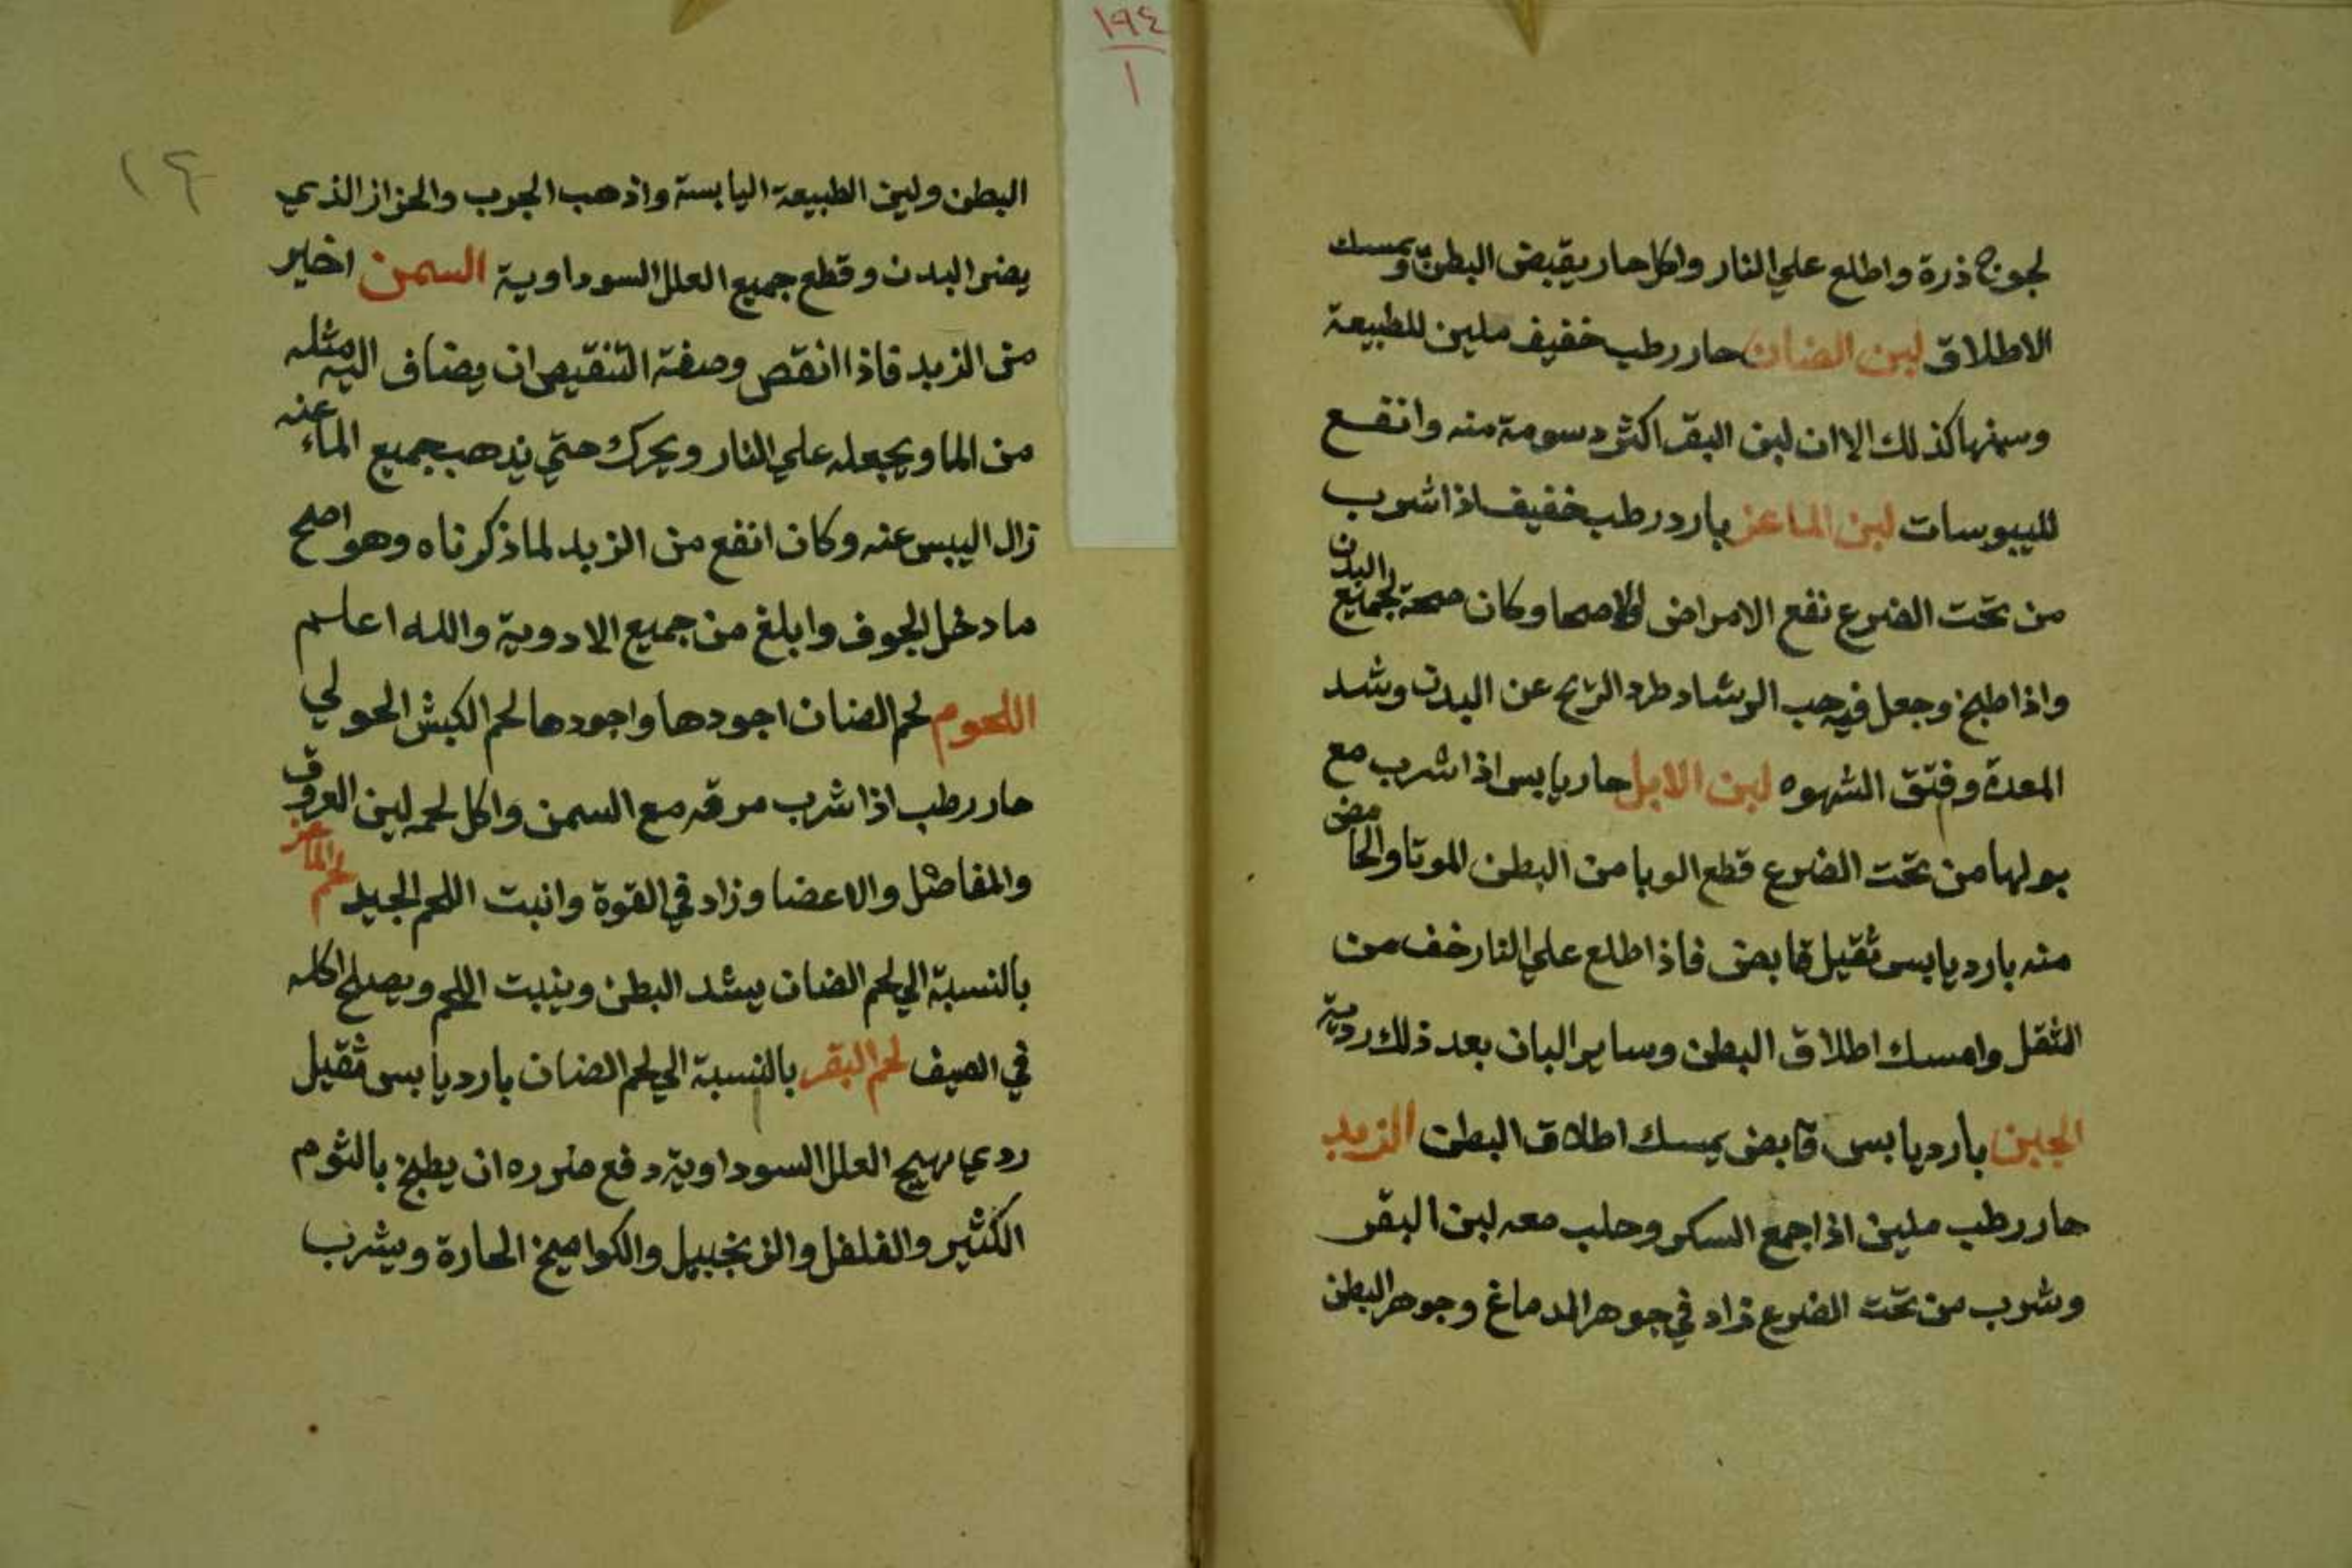 لجوح ذرة واطلع علي النار واكل حار يقبض البطن ويمسك
الاطلاق لبن الضان حار رطب خفيف ملين للطبيعة
وسمنها كذلك الا ان لبن البقر اكثر دسومة منه وانفع
لليبوسات لبن الماعز بارد رطب خفيف اذا شرب
من تحت الضرع نفع الامراض والاصحا وكان صحة لجميع البدن
واذا طبخ وجعل فيه حب الرشاد طرد الريح عن البدن وشد
المعدة وفتق الشهوه لبن الابل حار يابس اذا شرب مع
بولها من تحت الضرع قطع الوبا من البطن الموتا والحامض
منه بارد يابس ثقيل قابض فاذا طلع علي النار خف من
الثقل وامسك اطلاق البطن وساير البان بعد ذلك ردية
الجبن بارد يابس قابض يمسك اطلاق البطن الزبد
حار رطب ملين اذا جمع السكر وحلب معه لبن البقر
وشرب من تحت الضرع زاد في جوهر الدماغ وجوهر البطن
١٩٤
١
١٤
البطن ولين الطبيعة اليابسة واذهب الجرب والحزاز الذي
يضر البدن وقطع جميع العلل السوداوية السمن اخير
من الزبد فاذا انقص وصفة التنقيص ان يضاف اليه مثله
من الما ويجعله علي النار ويحرك حتي يذهب جميع الماء عنه
زال اليبس عنه وكان انفع من الزبد لما ذكرناه وهو اصلح
ما دخل الجوف وابلغ من جميع الادوية والله اعلم
اللحوم لحم الضان اجودها واجودها لحم الكبش الحولي
حار رطب اذا شرب مرقه مع السمن واكل لحمه لين العروق
والمفاصل والاعضا وزاد في القوة وانبت اللحم الجيد لحم الماعز
بالنسبة الي لحم الضان يشد البطن وينبت اللحم ويصلح اكله
في الصيف لحم البقر بالنسبة الي لحم الضان بارد يابس ثقيل
ردي يهيج العلل السوداوية دفع ضرره ان يطبخ بالثوم
الكثير والفلفل والزنجبيل والكواميخ الحارة ويشرب